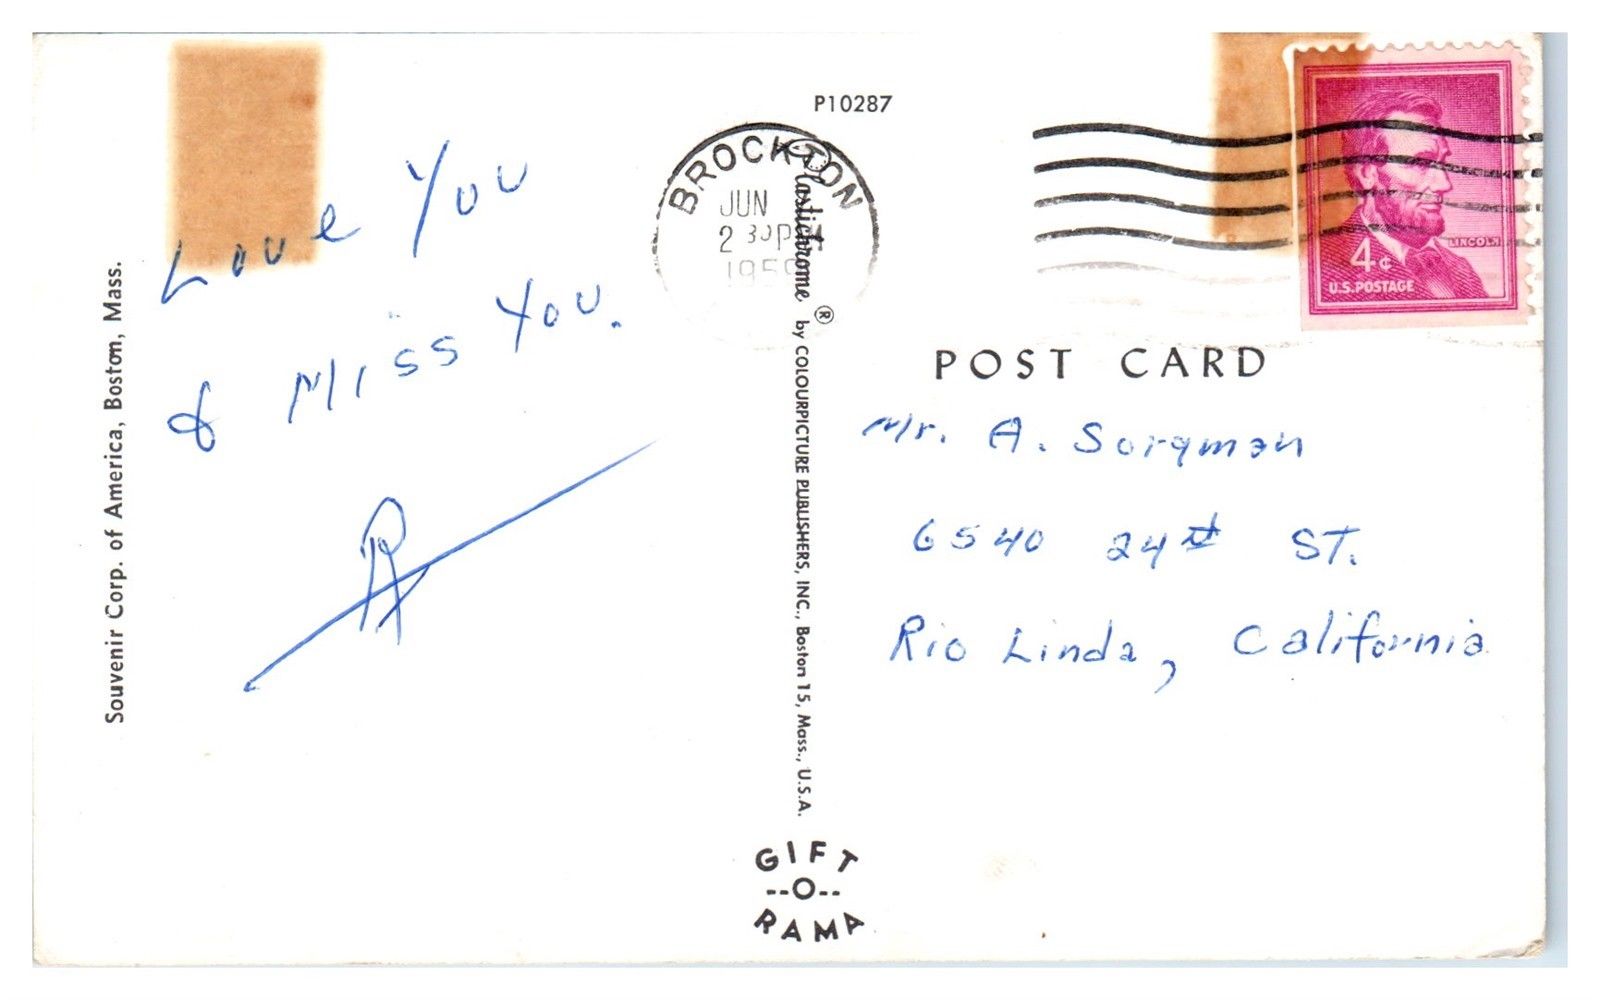 P10287
Love You
& Miss You.
Souvenir Corp. of America, Boston, Mass.
BROCKTON
JUN
2 30 PM
1959
Plastichrome ® by COLOURPICTURE PUBLISHERS, INC., Boston 15, Mass., U.S.A.
LINCOLN
4¢
U.S. POSTAGE
POST CARD
Mr. A. Sorgman
6540 24th ST.
Rio Linda, California
GIFT
--O--
RAMA